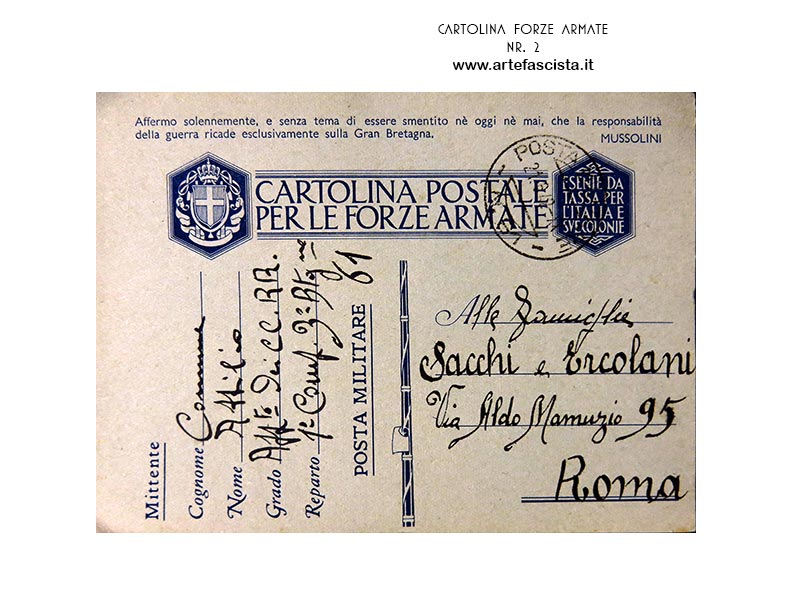 CARTOLINA FORZE ARMATE
NR. 2
www.artefascista.it
Affermo solennemente, e senza tema di essere smentito nè oggi nè mai, che la responsabilità
della guerra ricade esclusivamente sulla Gran Bretagna.
MUSSOLINI
CARTOLINA POSTALE
PER LE FORZE ARMATE
ESENTE DA
TASSA PER
L'ITALIA E
SVE COLONIE
POSTA
Mittente
Cognome
Nome Attilio
Grado App.to dei CC.RR.
Reparto 1ª Comp. 3º Btg.
POSTA MILITARE 61
Alle Famiglie
Sacchi e Ercolani
Via Aldo Manuzio 95
Roma